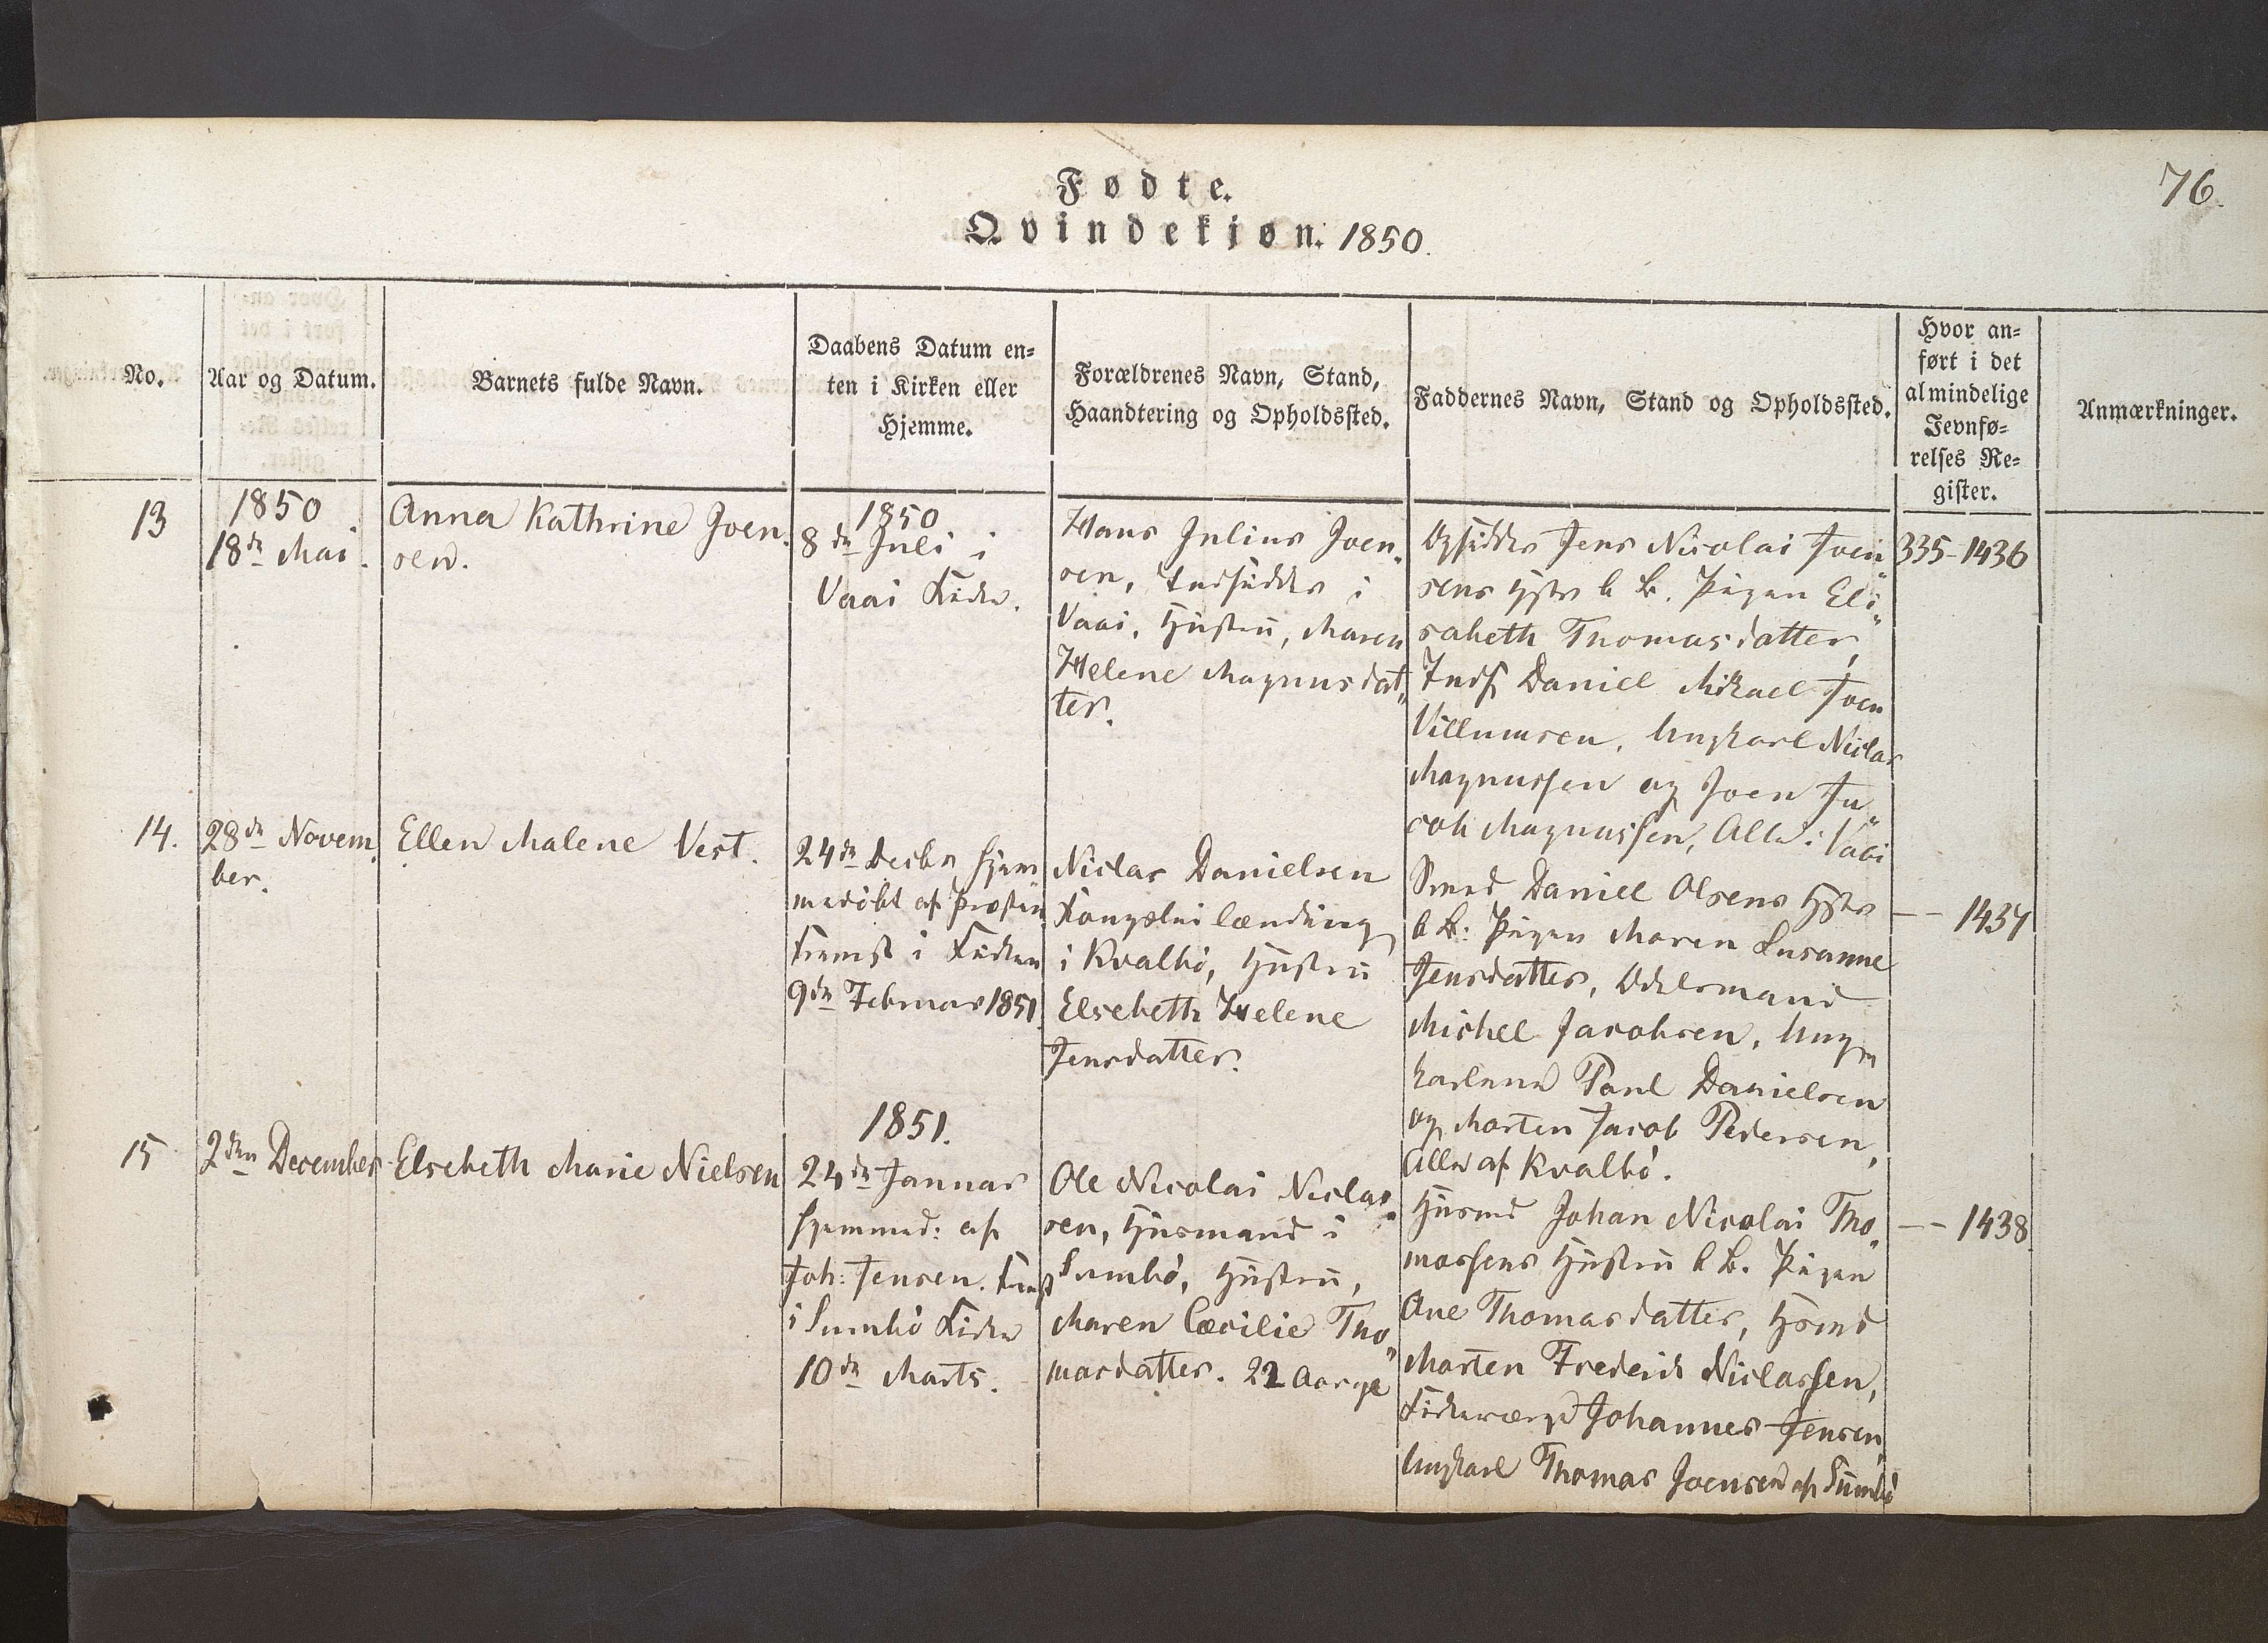 76.
Fødte.
Qvindekjøn. 1850.
No.
Aar og Datum.
Barnets fulde Navn.
Daabens Datum en=
ten i Kirken eller
Hjemme.
Forældrenes Navn, Stand,
Haandtering og Opholdssted.
Faddernes Navn, Stand og Opholdssted.
Hvor an=
ført i det
almindelige
Jevnfø=
relses Re=
gister.
Anmærkninger.
13
1850
18de Mai.
Anna Kathrine Joen„
sen.
1850
8de Juli i
Vaai Kirke.
Hans Julius Joen„
sen, Indsidder i
Vaai, Hustru, Maren
Helene Magnusdat„
ter.
Opsidder Jens Nicolai Joen„
sens Hstr b. B. Pigen Eli„
sabeth Thomasdatter,
Inds. Daniel Mikael Joen
Villumsen, Ungkarl Niclas
Magnussen og Joen Ja„
cob Magnussen, Alle i Vaai
335-1436
14.
28de Novem„
ber.
Ellen Malene Vest.
24de Decbr hjem
medøbt af Præsten
fremst i Kirken
9de Februar 1851.
Niclas Danielsen
Kongslændning
i Kvalbø, Hustru
Elsebeth Helene
Jensdatter.
Smed Daniel Olsens Hstr
b. B: Pigen Maren Susanne
Jensdatter, Odelsmand
Michel Jacobsen, Ung„
karlene Poul Danielsen
og Morten Jacob Pedersen,
Alle af Kvalbø.
-- 1437
15
2den December
Elsebeth Marie Nielsen
1851.
24de Januar
hjemmed: af
Joh: Jensen. Fremst
i Sumbø Kirke
10de Marts.
Ole Nicolai Niclas„
sen, Husmand i
Sumbø, Hustru,
Maren Cæcilie Tho„
masdatter. 22 Aar gl
Husmd Johan Nicolai Tho„
massens Hustru b. B. Pigen
Ane Thomasdatter, Hsmd
Morten Frederik Niclassen,
Kirkeværge Johannes Jensen,
Ungkarl Thomas Joensen af Sumbø
-- 1438.